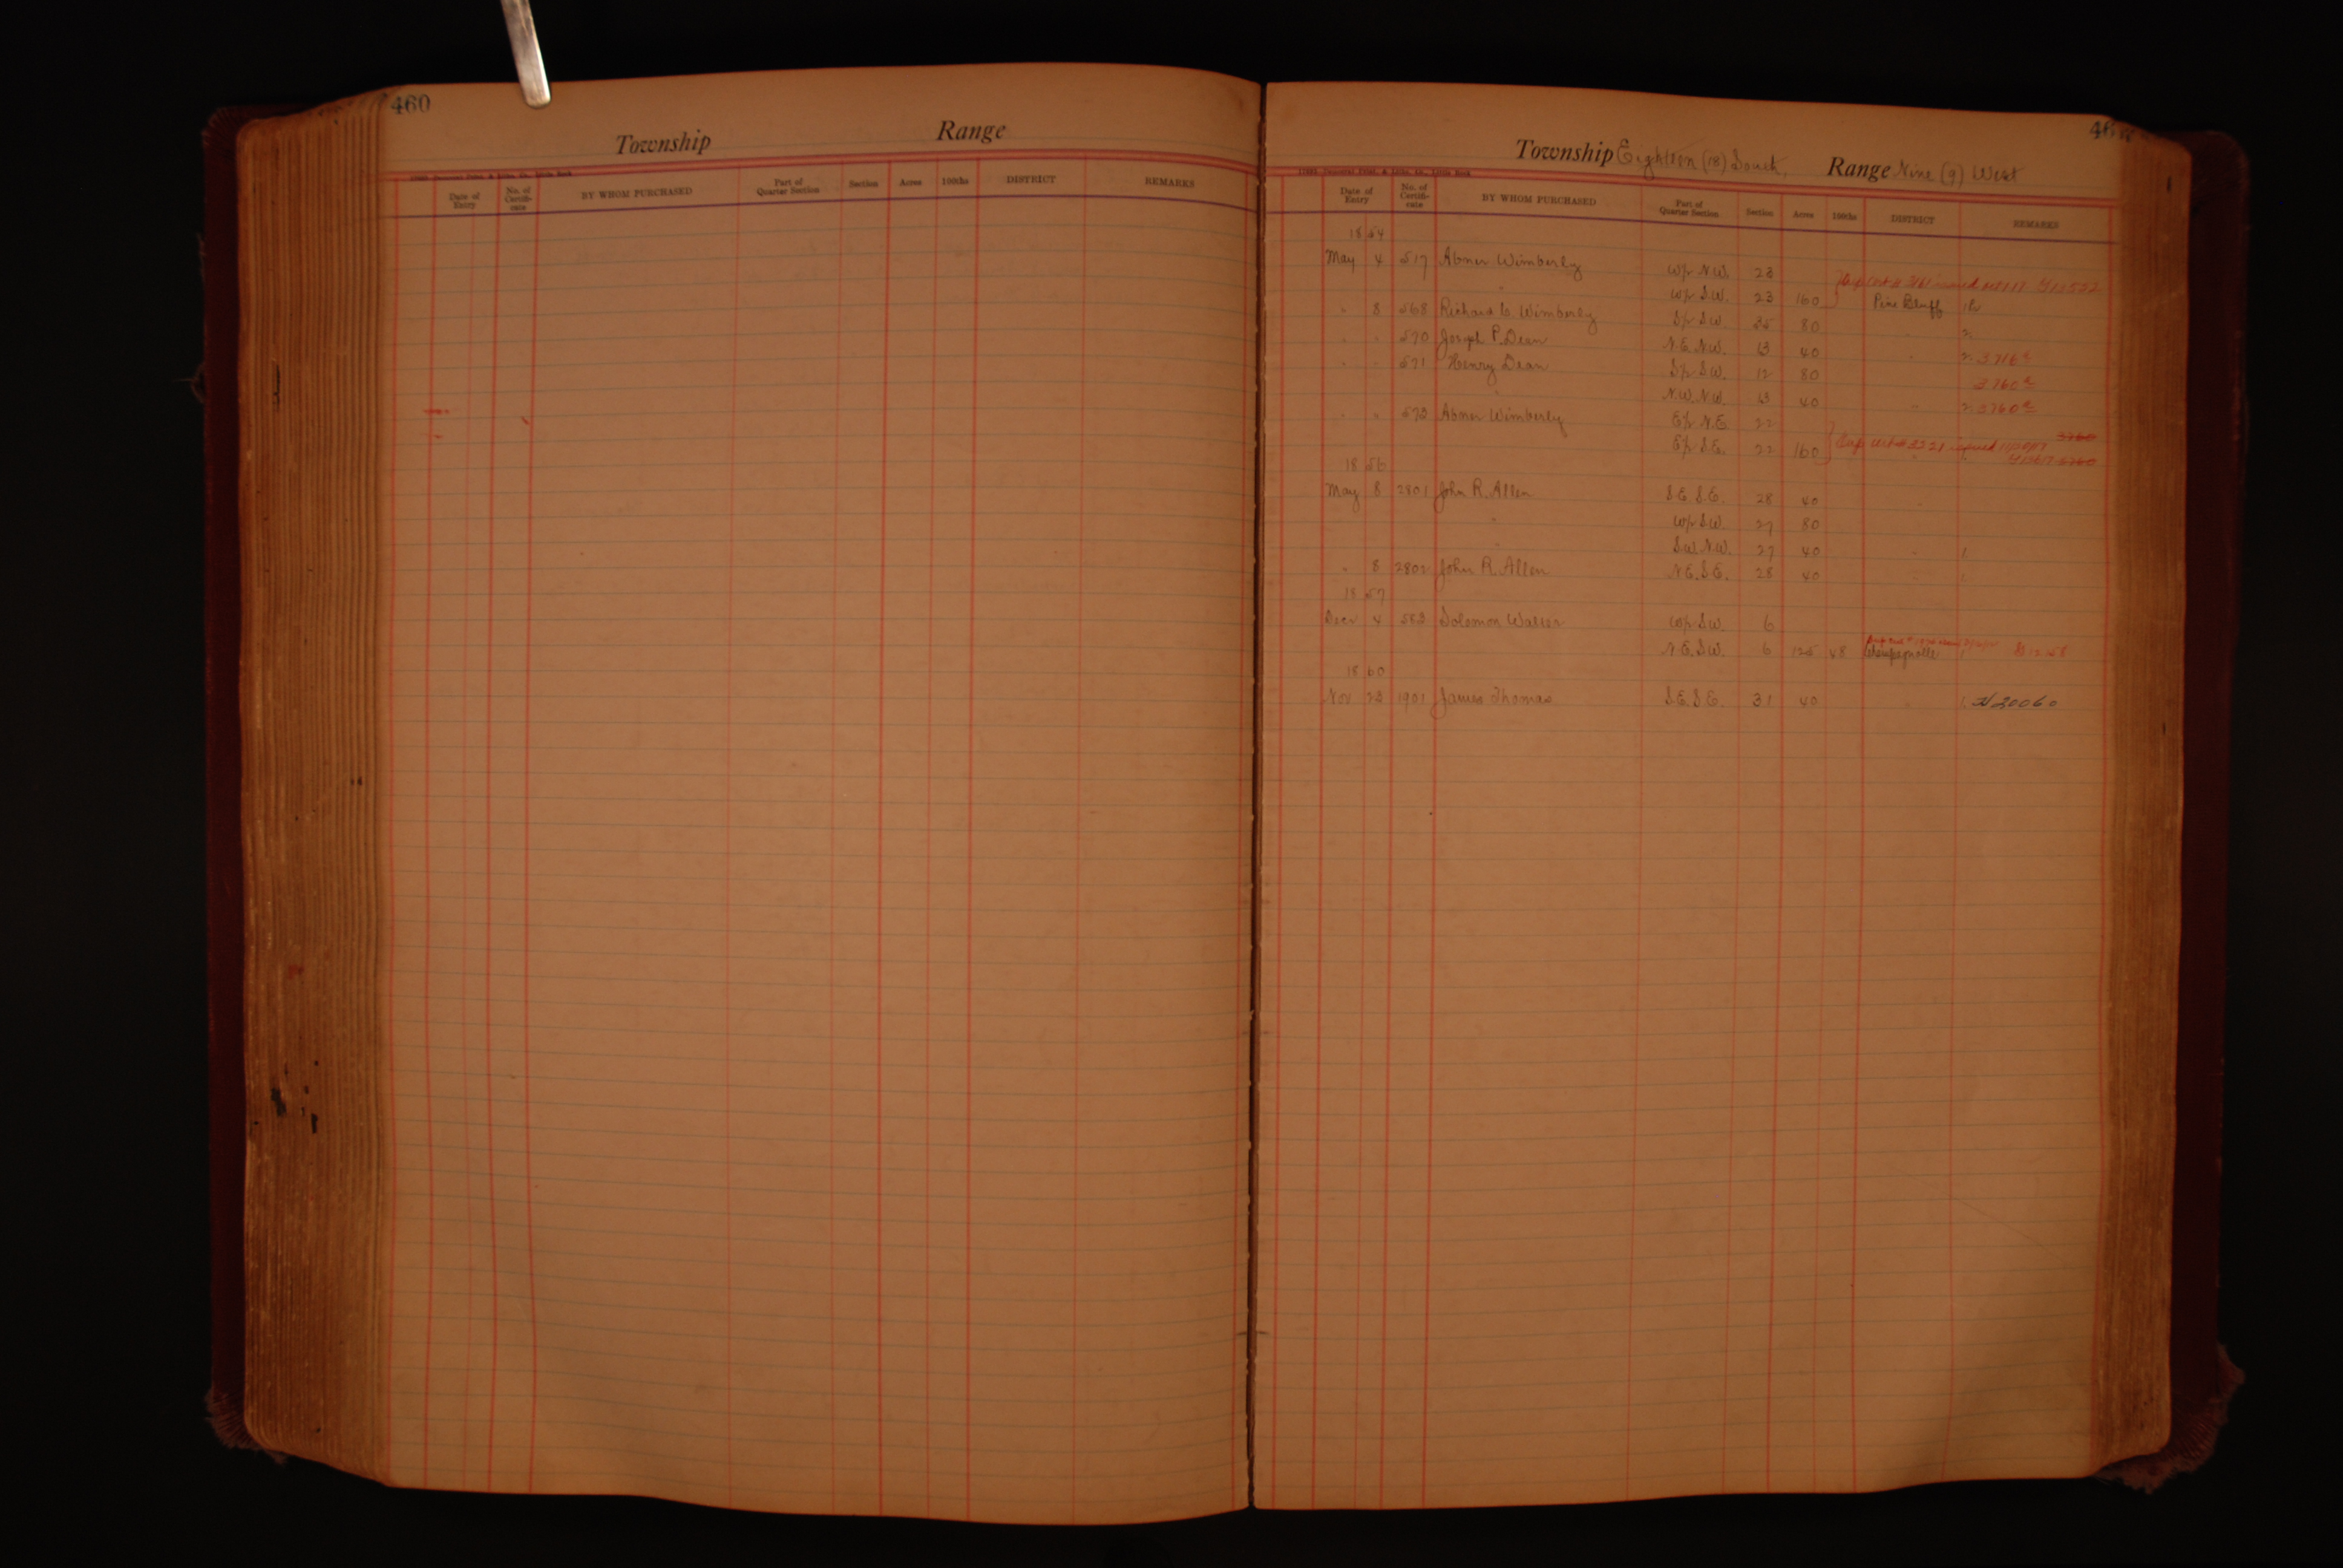 460
Township Range
Date of Entry No. of Certifi-cate BY WHOM PURCHASED Part of Quarter Section Section Acres 100ths DISTRICT REMARKS
Township Eighteen (18) South, Range Nine (9) West
Date of Entry No. of Certifi-cate BY WHOM PURCHASED Part of Quarter Section Section Acres 100ths DISTRICT REMARKS
1854
May 4 517 Abner Wimberly W/2 N.W. 23
" W/2 S.W. 23 160 Pine Bluff
" 8 568 Richard Wimberly S/2 S.W. 35 80 " 2
" " 570 Joseph P. Dean N.E. N.W. 13 40 " 2 3716
" " 571 Henry Dean S/2 S.W. 12 80 3760
" N.W. N.W. 13 40 " 2 3760
" " 573 Abner Wimberly E/2 N.E. 22 3760
E/2 S.E. 22 160 3760
1856
May 8 2801 John R. Allen S.E. S.E. 28 40 "
" W/2 S.W. 27 80
" S.W. N.W. 27 40 " 1
" 8 2802 John R. Allen N.E. S.E. 28 40 " 1
1857
Decr 4 583 Solomon W/2 S.W. 6
N.E. S.W. 6 125 48 Champagnolle 1
1860
Nov 23 1901 James Thomas S.E. S.E. 31 40 " 1 20060